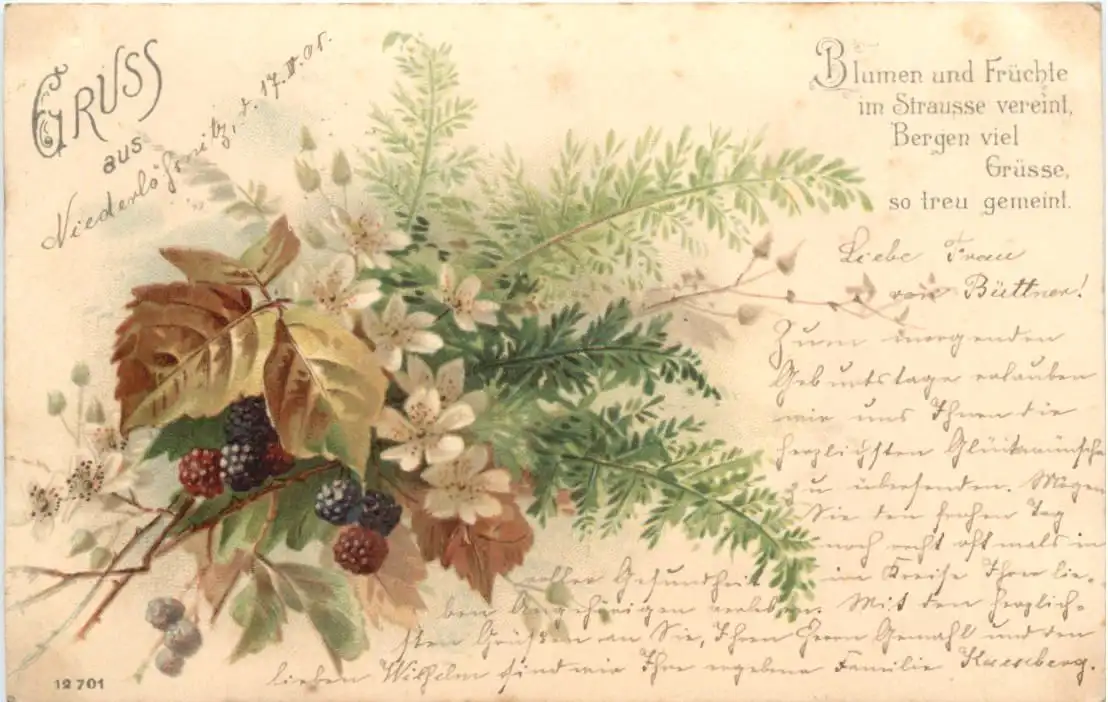 GRUSS
aus
Niederlößnitz, d. 17. IV. 01.
Blumen und Früchte
im Strausse vereint,
Bergen viel
Grüsse,
so treu gemeint.
Liebe Frau
von Büttner!
Zum morgenden
Geburtstage erlauben
wir uns Ihnen die
herzlichsten Glückwünsche
zu übersenden. Mögen
Sie den frohen Tag
noch recht oftmals in
voller Gesundheit im Kreise Ihrer lie-
ben Angehörigen erleben. Mit den herzlich-
sten Grüßen an Sie, Ihren Herrn Gemahl und den
lieben Wilhelm sind wir Ihre ergebene Familie
12701